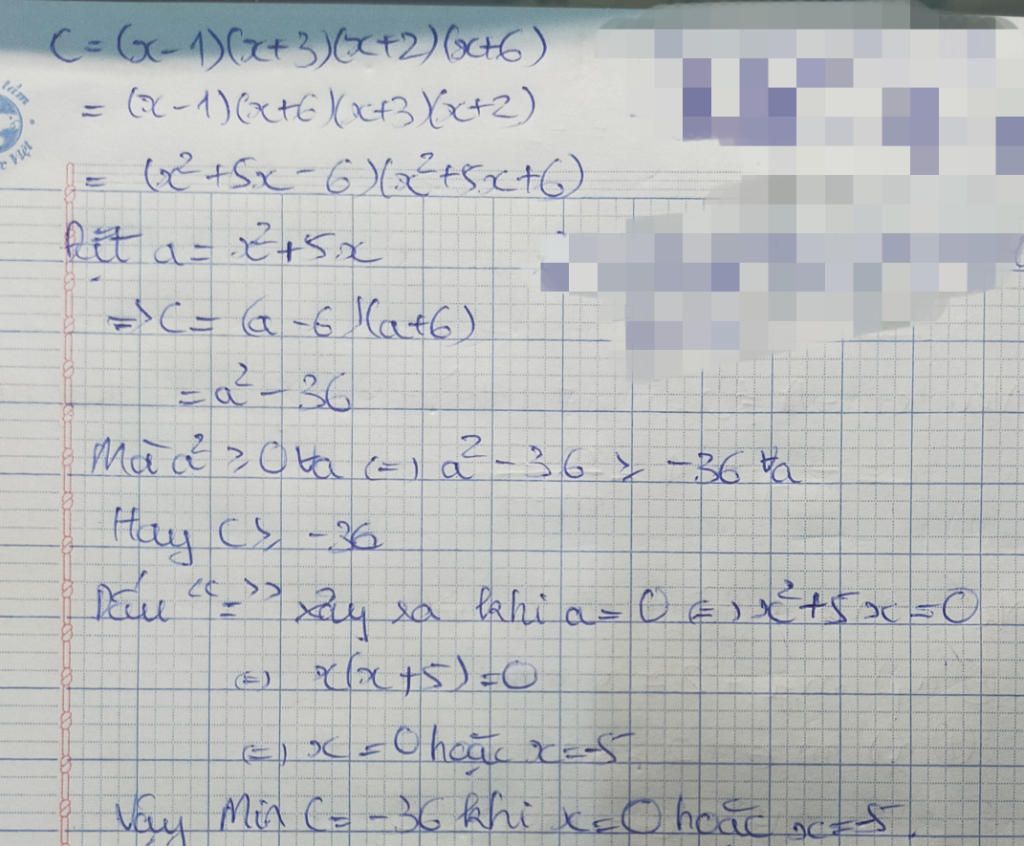 C = (x-1)(x+3)(x+2)(x+6)
= (x-1)(x+6)(x+3)(x+2)
= (x²+5x-6)(x²+5x+6)
Đặt a = x²+5x
=> C = (a-6)(a+6)
= a² - 36
Mà a² ≥ 0 ∀a (=) a² - 36 ≥ -36 ∀a
Hay C ≥ -36
Dấu "=" xảy ra khi a = 0 (=) x²+5x = 0
(=) x(x+5) = 0
(=) x = 0 hoặc x = -5
Vậy Min C = -36 khi x = 0 hoặc x = -5.